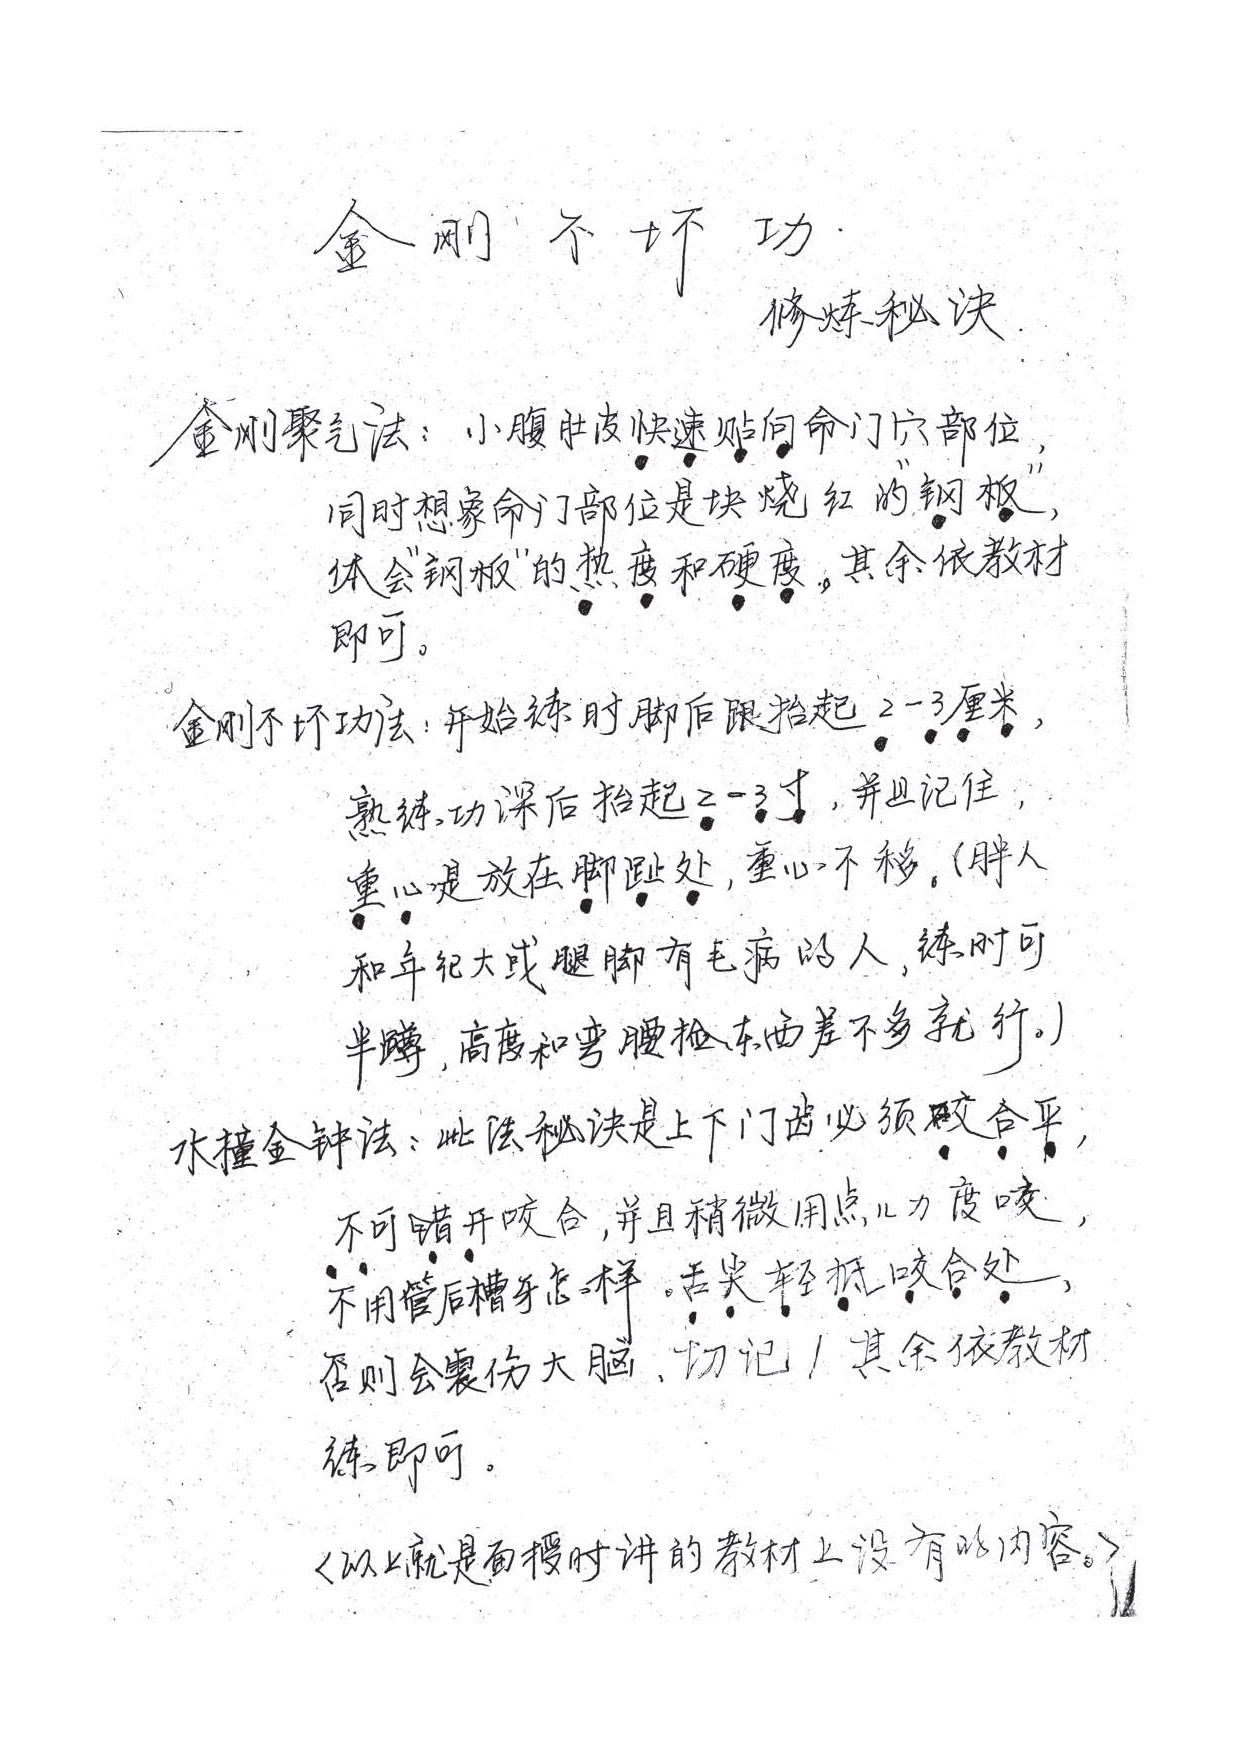 金刚不坏功
修炼秘诀
金刚聚气法：小腹肚皮快速贴向命门穴部位，
同时想象命门部位是块烧红的“钢板”，
体会“钢板”的热度和硬度。其余依教材
即可。
金刚不坏功法：开始练时脚后跟抬起2-3厘米，
熟练功深后抬起2-3寸，并且记住，
重心是放在脚趾处，重心不移。（胖人
和年纪大或腿脚有毛病的人，练时可
半蹲，高度和弯腰捡东西差不多就行。）
水撞金钟法：此法秘诀是上下门齿必须咬合平，
不可错开咬合，并且稍微用点儿力度咬，
不用管后槽牙怎样。舌尖轻抵咬合处，
否则会震伤大脑、切记！其余依教材
练即可。
<以上就是面授时讲的教材上没有的内容。>